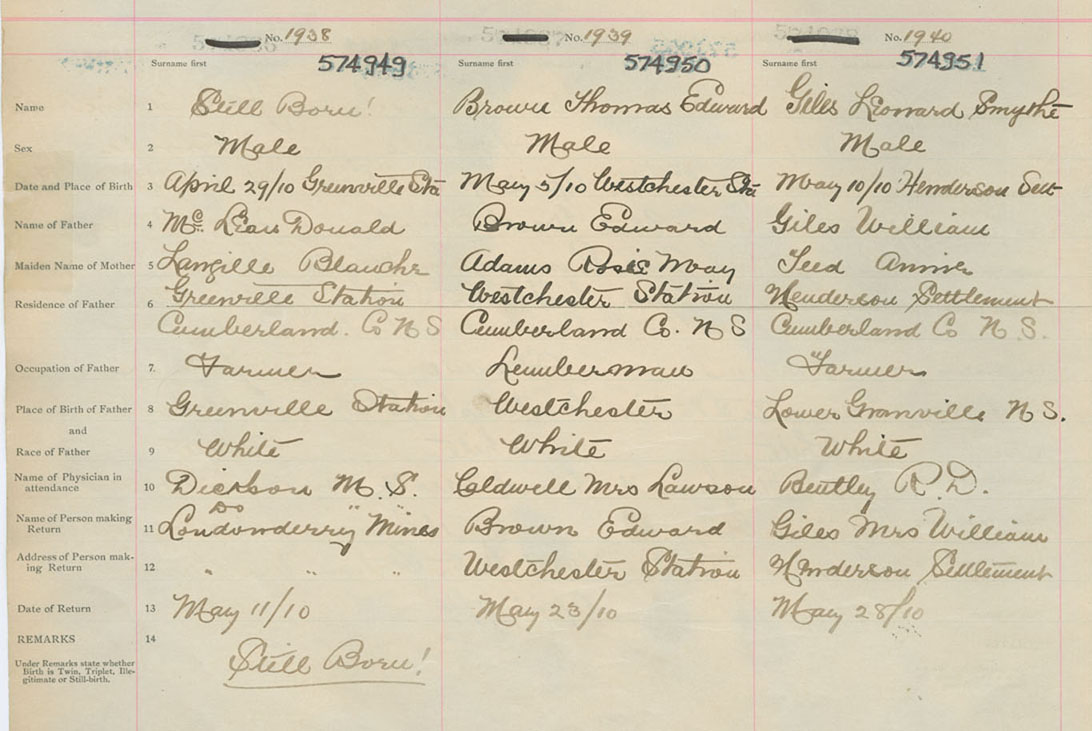 No. 1938 No. 1939 No. 1940
Surname first 574949 Surname first 574950 Surname first 574951
Name 1 Still Born! Brown Thomas Edward Giles Leonard Smythe
Sex 2 Male Male Male
Date and Place of Birth 3 April 29/10 Greenville Sta May 5/10 Westchester Sta May 10/10 Henderson Sett
Name of Father 4 Mc Lean Donald Brown Edward Giles William
Maiden Name of Mother 5 Langille Blanche Adams Rosie May Teed Annie
Residence of Father 6 Greenville Station Westchester Station Henderson Settlement
Cumberland. Co N S Cumberland Co. N S Cumberland Co N S.
Occupation of Father 7. Farmer Lumberman Farmer
Place of Birth of Father 8 Greenville Station Westchester Lower Granville N S.
and
Race of Father 9 White White White
Name of Physician in
attendance 10 Dickson M. S. Coldwell Mrs Lawson Bentley R. D.
Do " "
Name of Person making
Return 11 Londonderry Mines Brown Edward Giles Mrs William
Address of Person mak-
ing Return 12 " " " Westchester Station Henderson Settlement
Date of Return 13 May 11/10 May 23/10 May 28/10
REMARKS 14
Under Remarks state whether
Birth is Twin, Triplet, Ille-
gitimate or Still-birth.
Still Born!